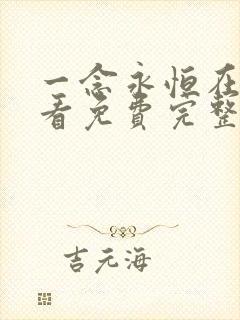 一念永恒在
看免费完整
吉元海